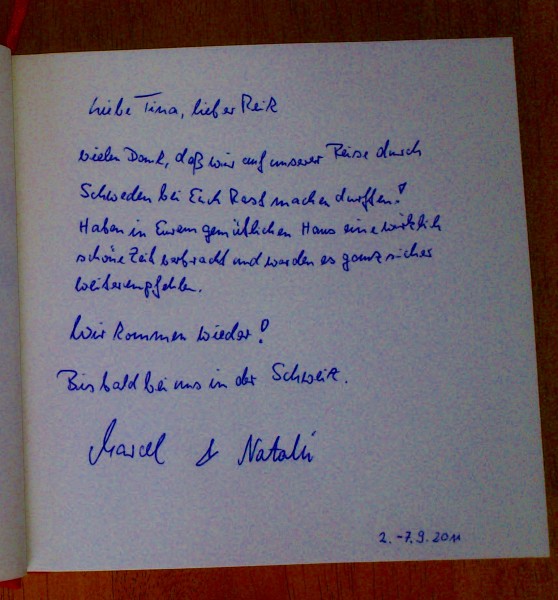 Liebe Tina, lieber Reik
vielen Dank, daß wir auf unserer Reise durch
Schweden bei Euch Rast machen durften!
Haben in Eurem gemütlichen Haus eine wirklich
schöne Zeit verbracht und werden es ganz sicher
weiterempfehlen.
Wir kommen wieder!
Bis bald bei uns in der Schweiz.
Marcel & Natalie
2.-7.9.2011